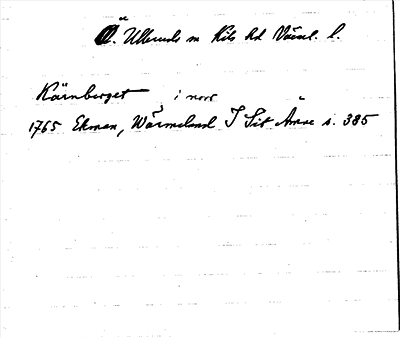 Ö. Ulleruds sn Kils hd Värml. l.
Kärnberget, i norr
1765 Ekman, Wärmeland I Sit Ämne s. 385